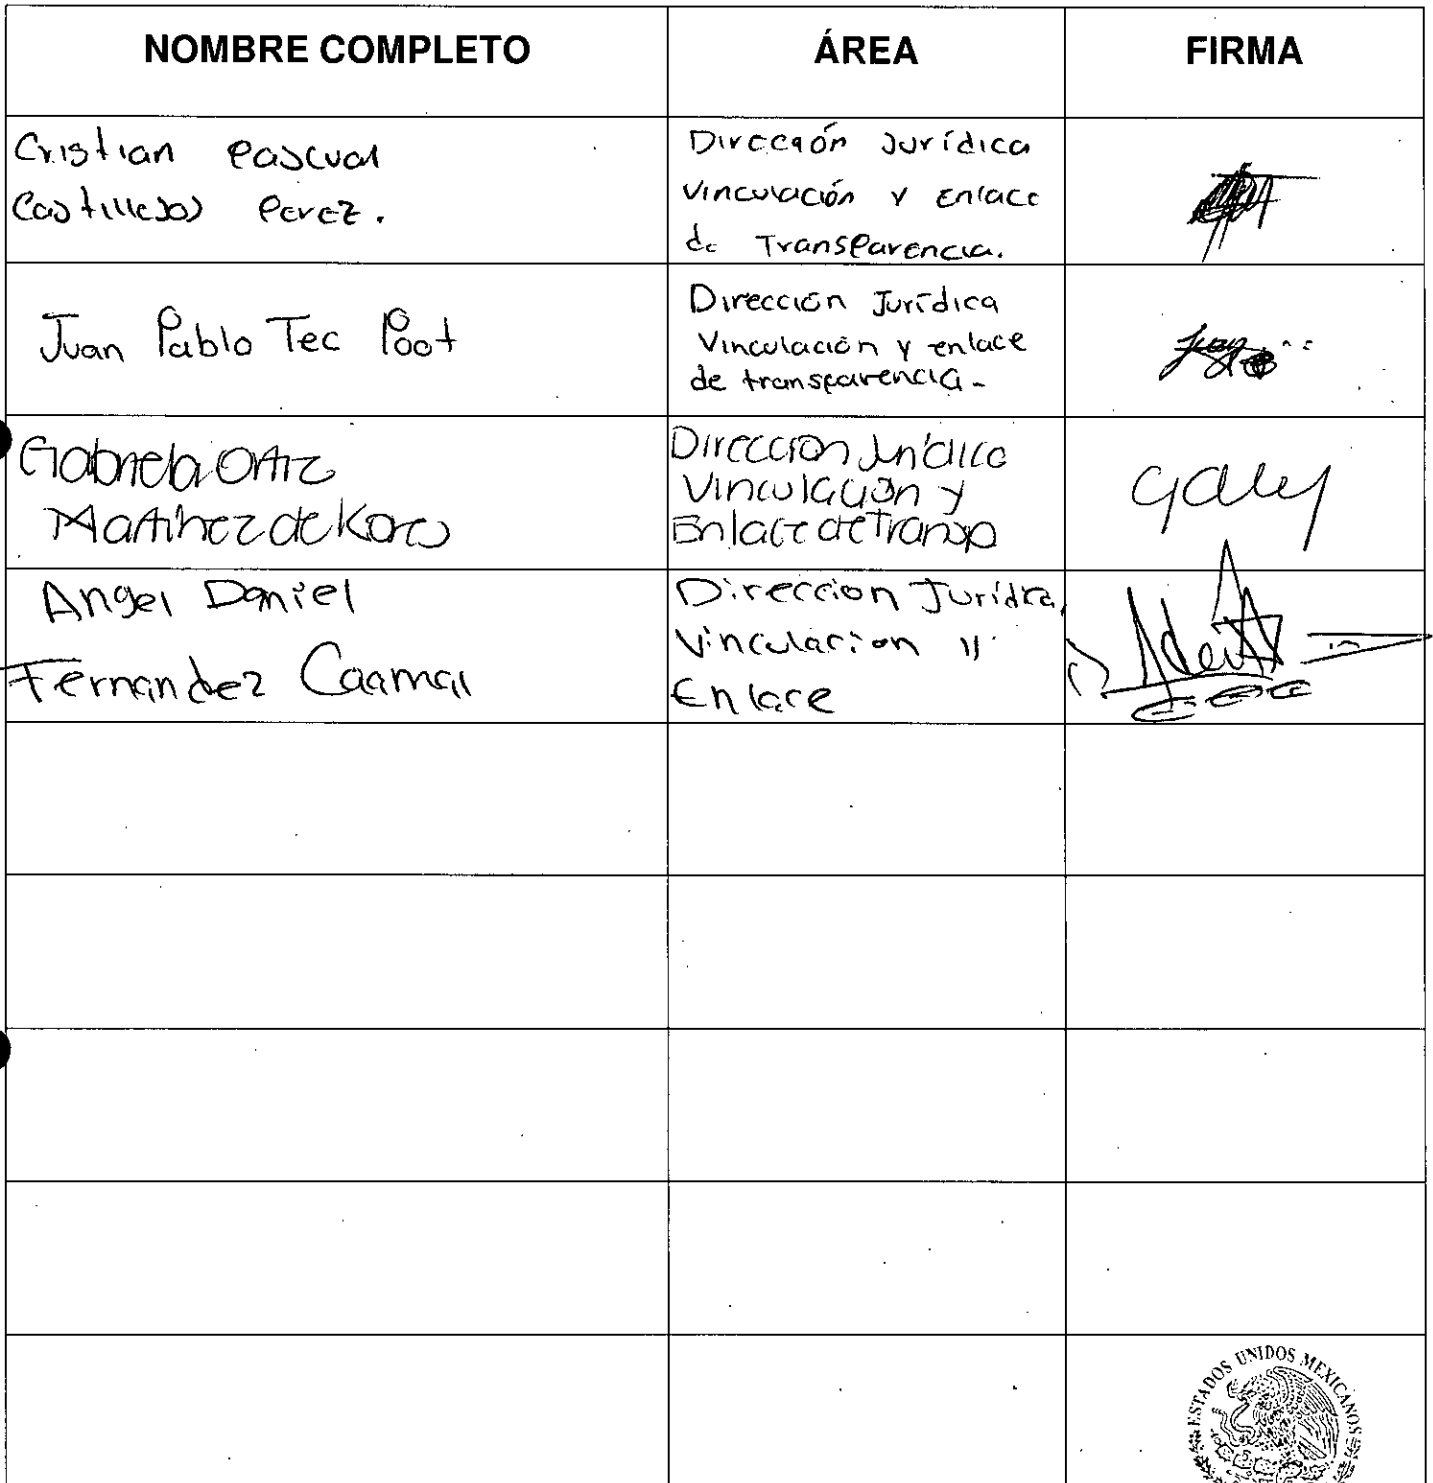 NOMBRE COMPLETO ÁREA FIRMA
Cristian Pascual
Castillejos Perez.
Dirección Jurídica
Vinculación y Enlace
de Transparencia.
Juan Pablo Tec Poot
Dirección Jurídica
Vinculación y enlace
de transparencia-
Gabriela Ortiz
Martinez de Koro
Dirección Jurídica
Vinculación y
Enlace de Transp
Gaby
Angel Daniel
Fernandez Caamal
Direccion Jurídica,
Vinculacion y
Enlace
ESTADOS UNIDOS MEXICANOS